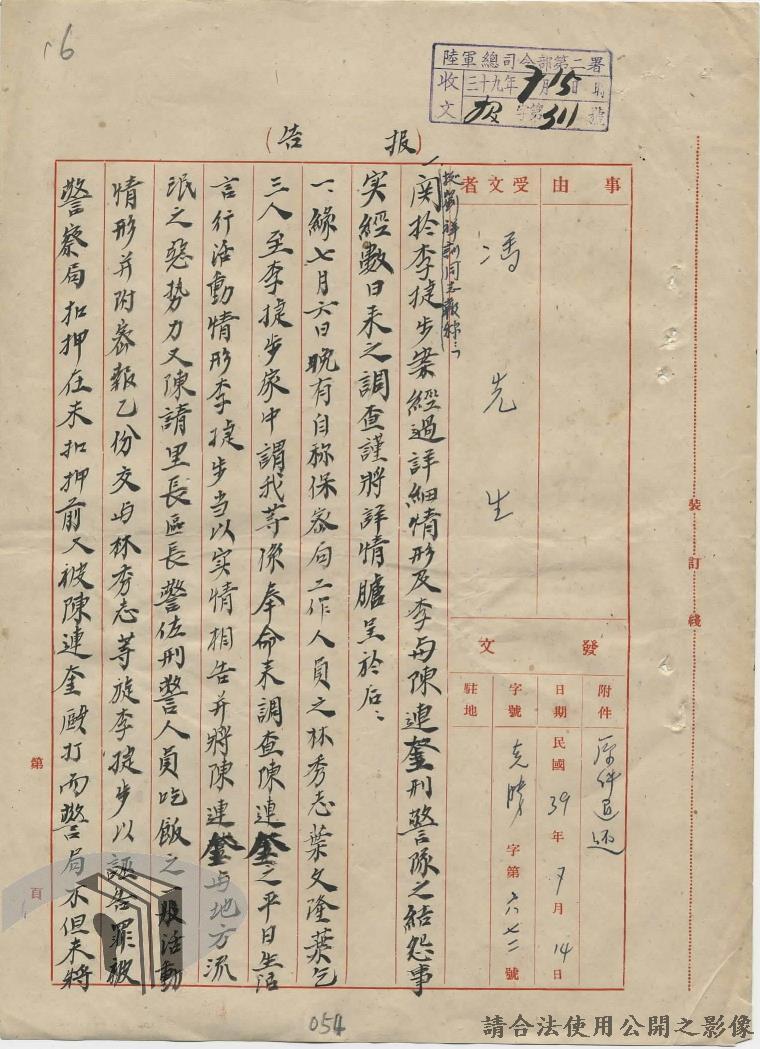 16
陸軍總司令部第二署
收文
三十九年7月15日 時
字第311號
報告
事由
受文者
馮先生
發文
附件
原件退还
日期
民國39年7月14日
字號
克勝字第六七二號
駐地
一、據劉祥訓同志報稱：「
関於李捷步案經過詳細情形及李与陳連奎刑警隊之結怨事
实經數日来之調查謹將詳情臚呈於后：
一、緣七月六日晚有自称保密局工作人員之林秀志葉文隆葉乞
三人至李捷步家中謂我等係奉命来調查陳連奎之平日生活
言行活動情形李捷步当以实情相告并將陳連奎与地方流
氓之惡势力又陳請里長區長警佐刑警人員吃飯之一般活動
情形并附密報乙份交与林秀志等旋李捷步以誣告罪被
警察局扣押在未扣押前又被陳連奎毆打而警局不但未將
裝訂綫
第頁
054
請合法使用公開之影像